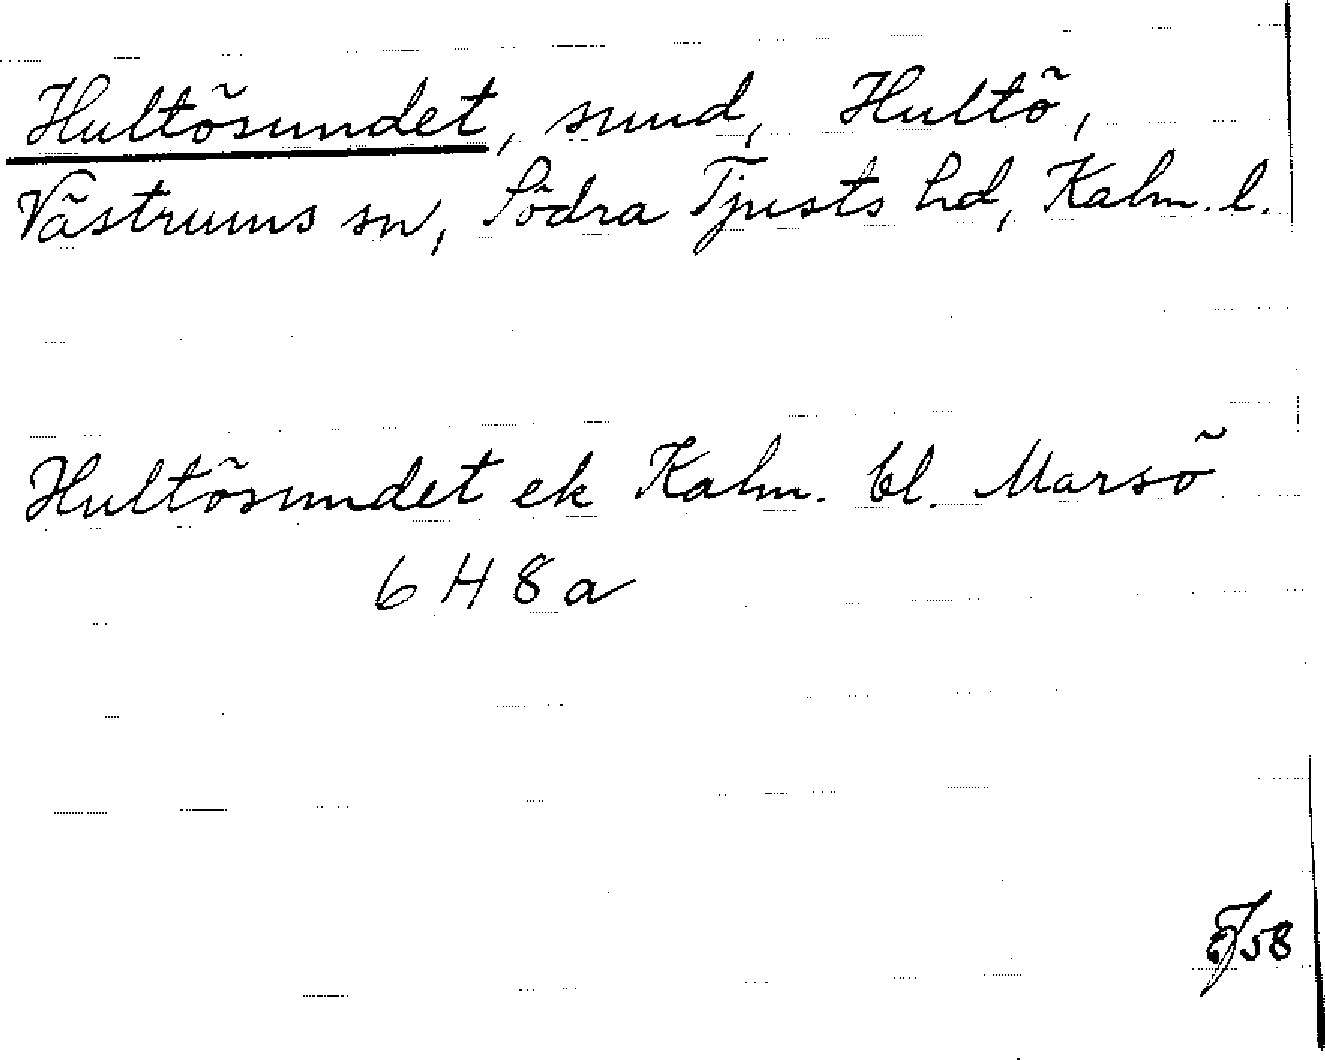 Hultösundet, sund, Hultö,
Västrums sn, Södra Tjusts hd, Kalm. l.
Hultösundet ek Kalm. bl. Marsö
6 H 8 a
58